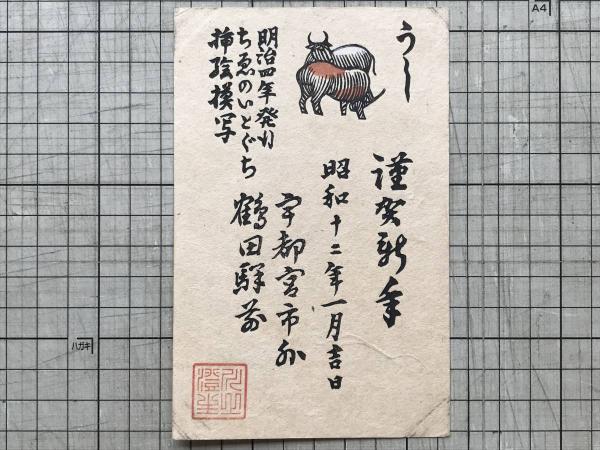 うし
謹賀新年
昭和十二年一月吉日
宇都宮市外
鶴田駅前
明治四年発行
ちゑのいとぐち
挿絵模写
川上
澄生
A4
ハガキ